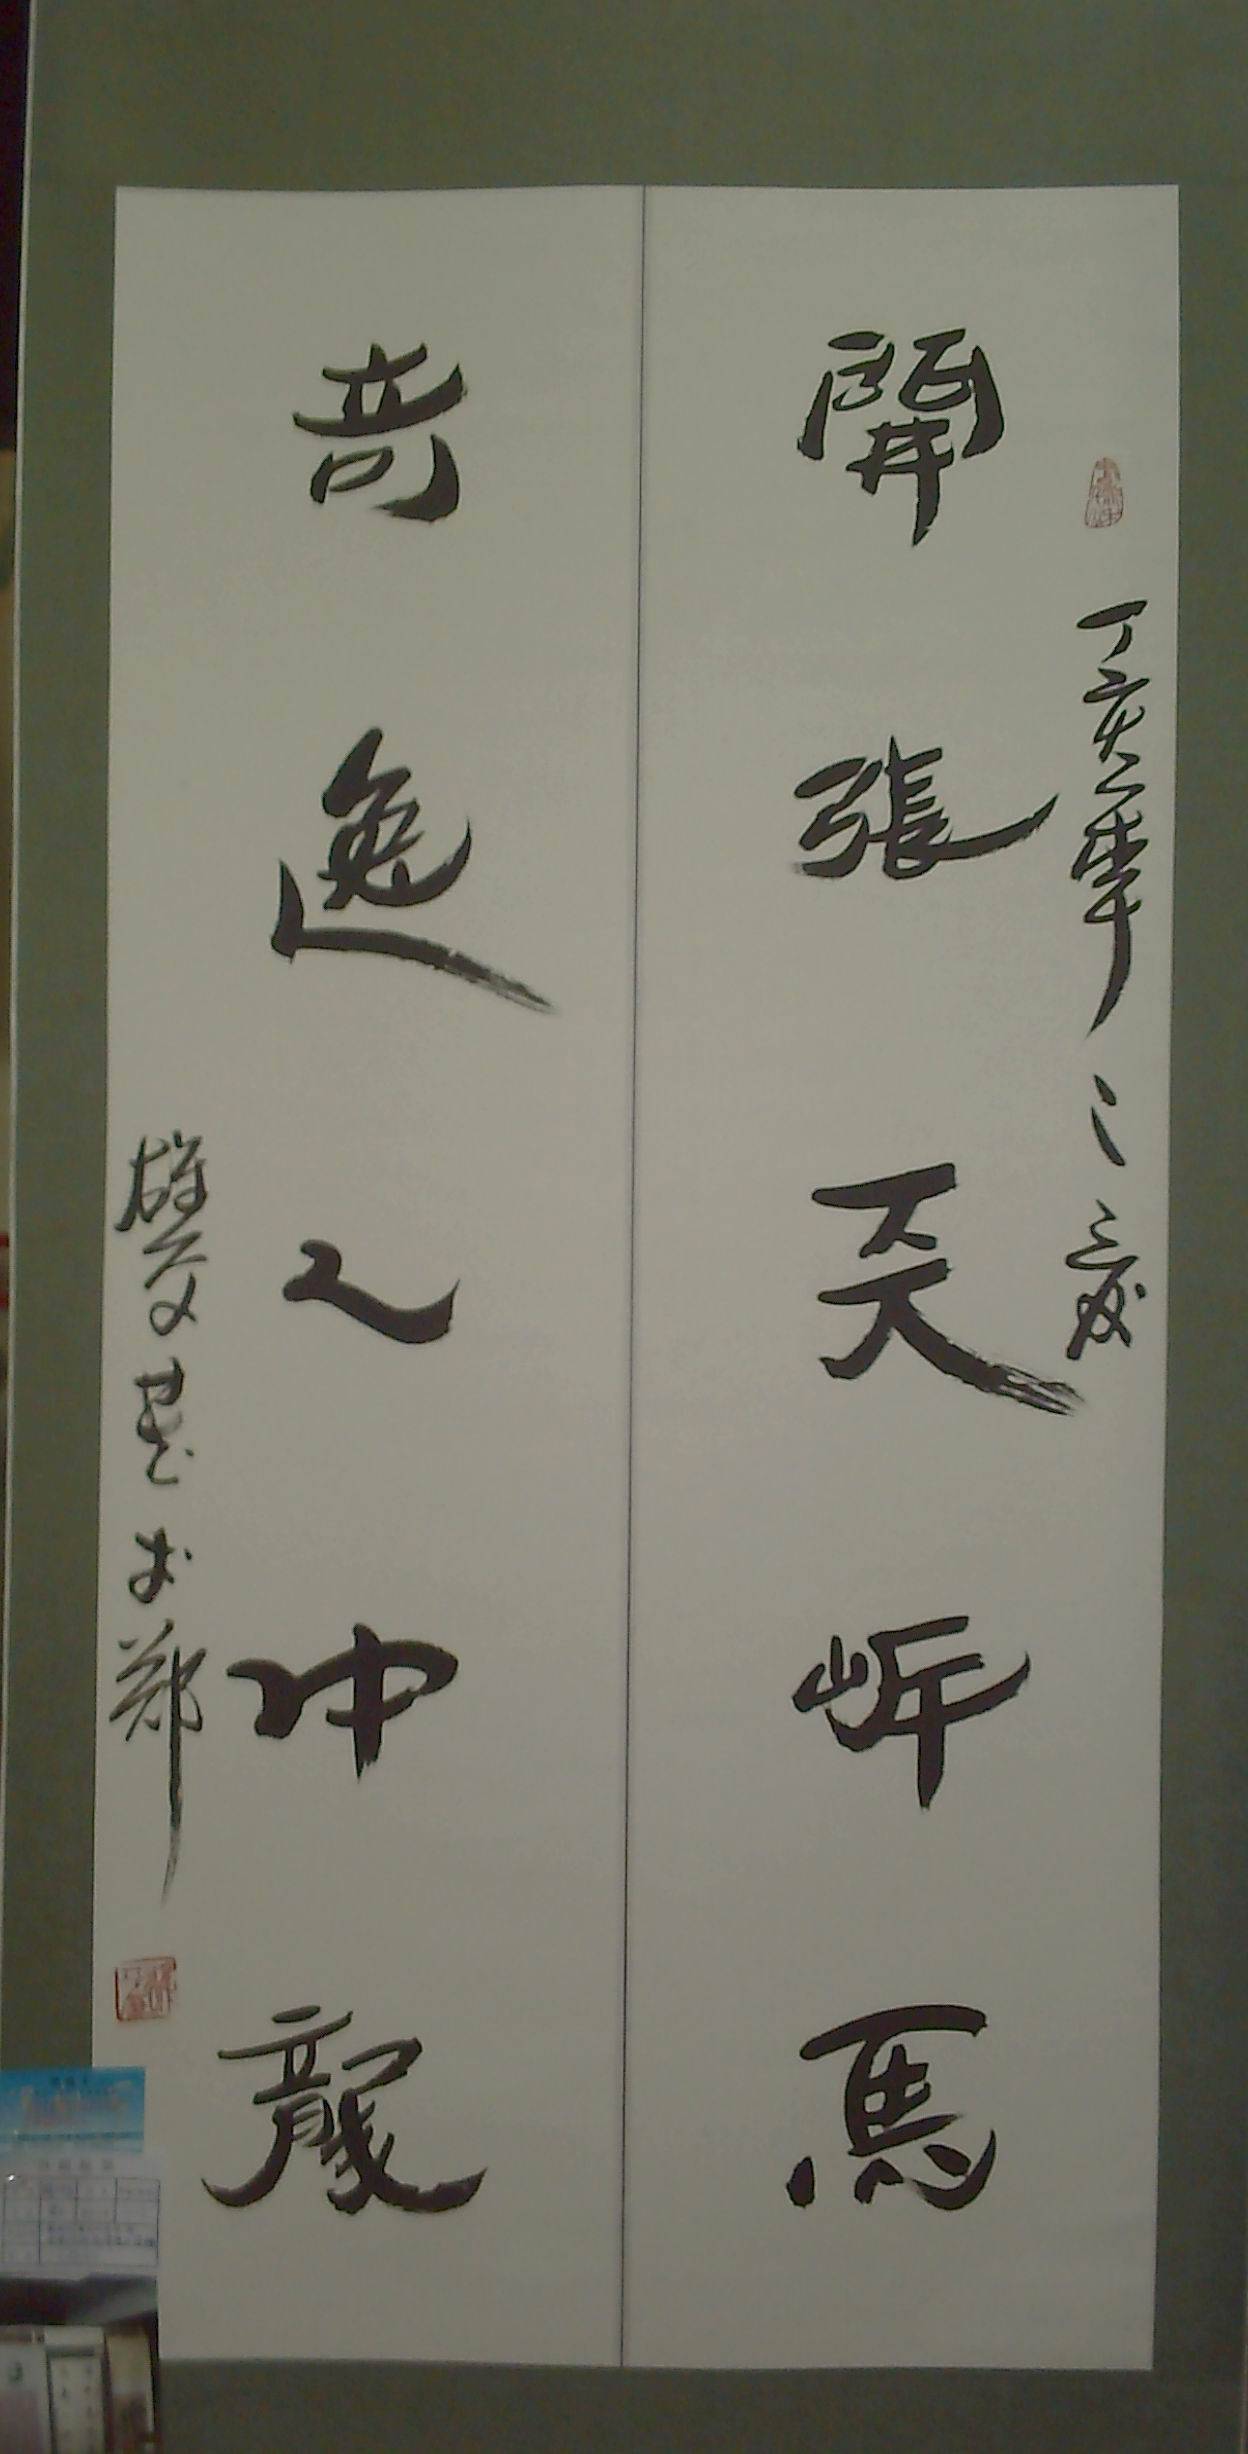 丁亥年
開張天岸馬
奇逸人中龍
書於鄭